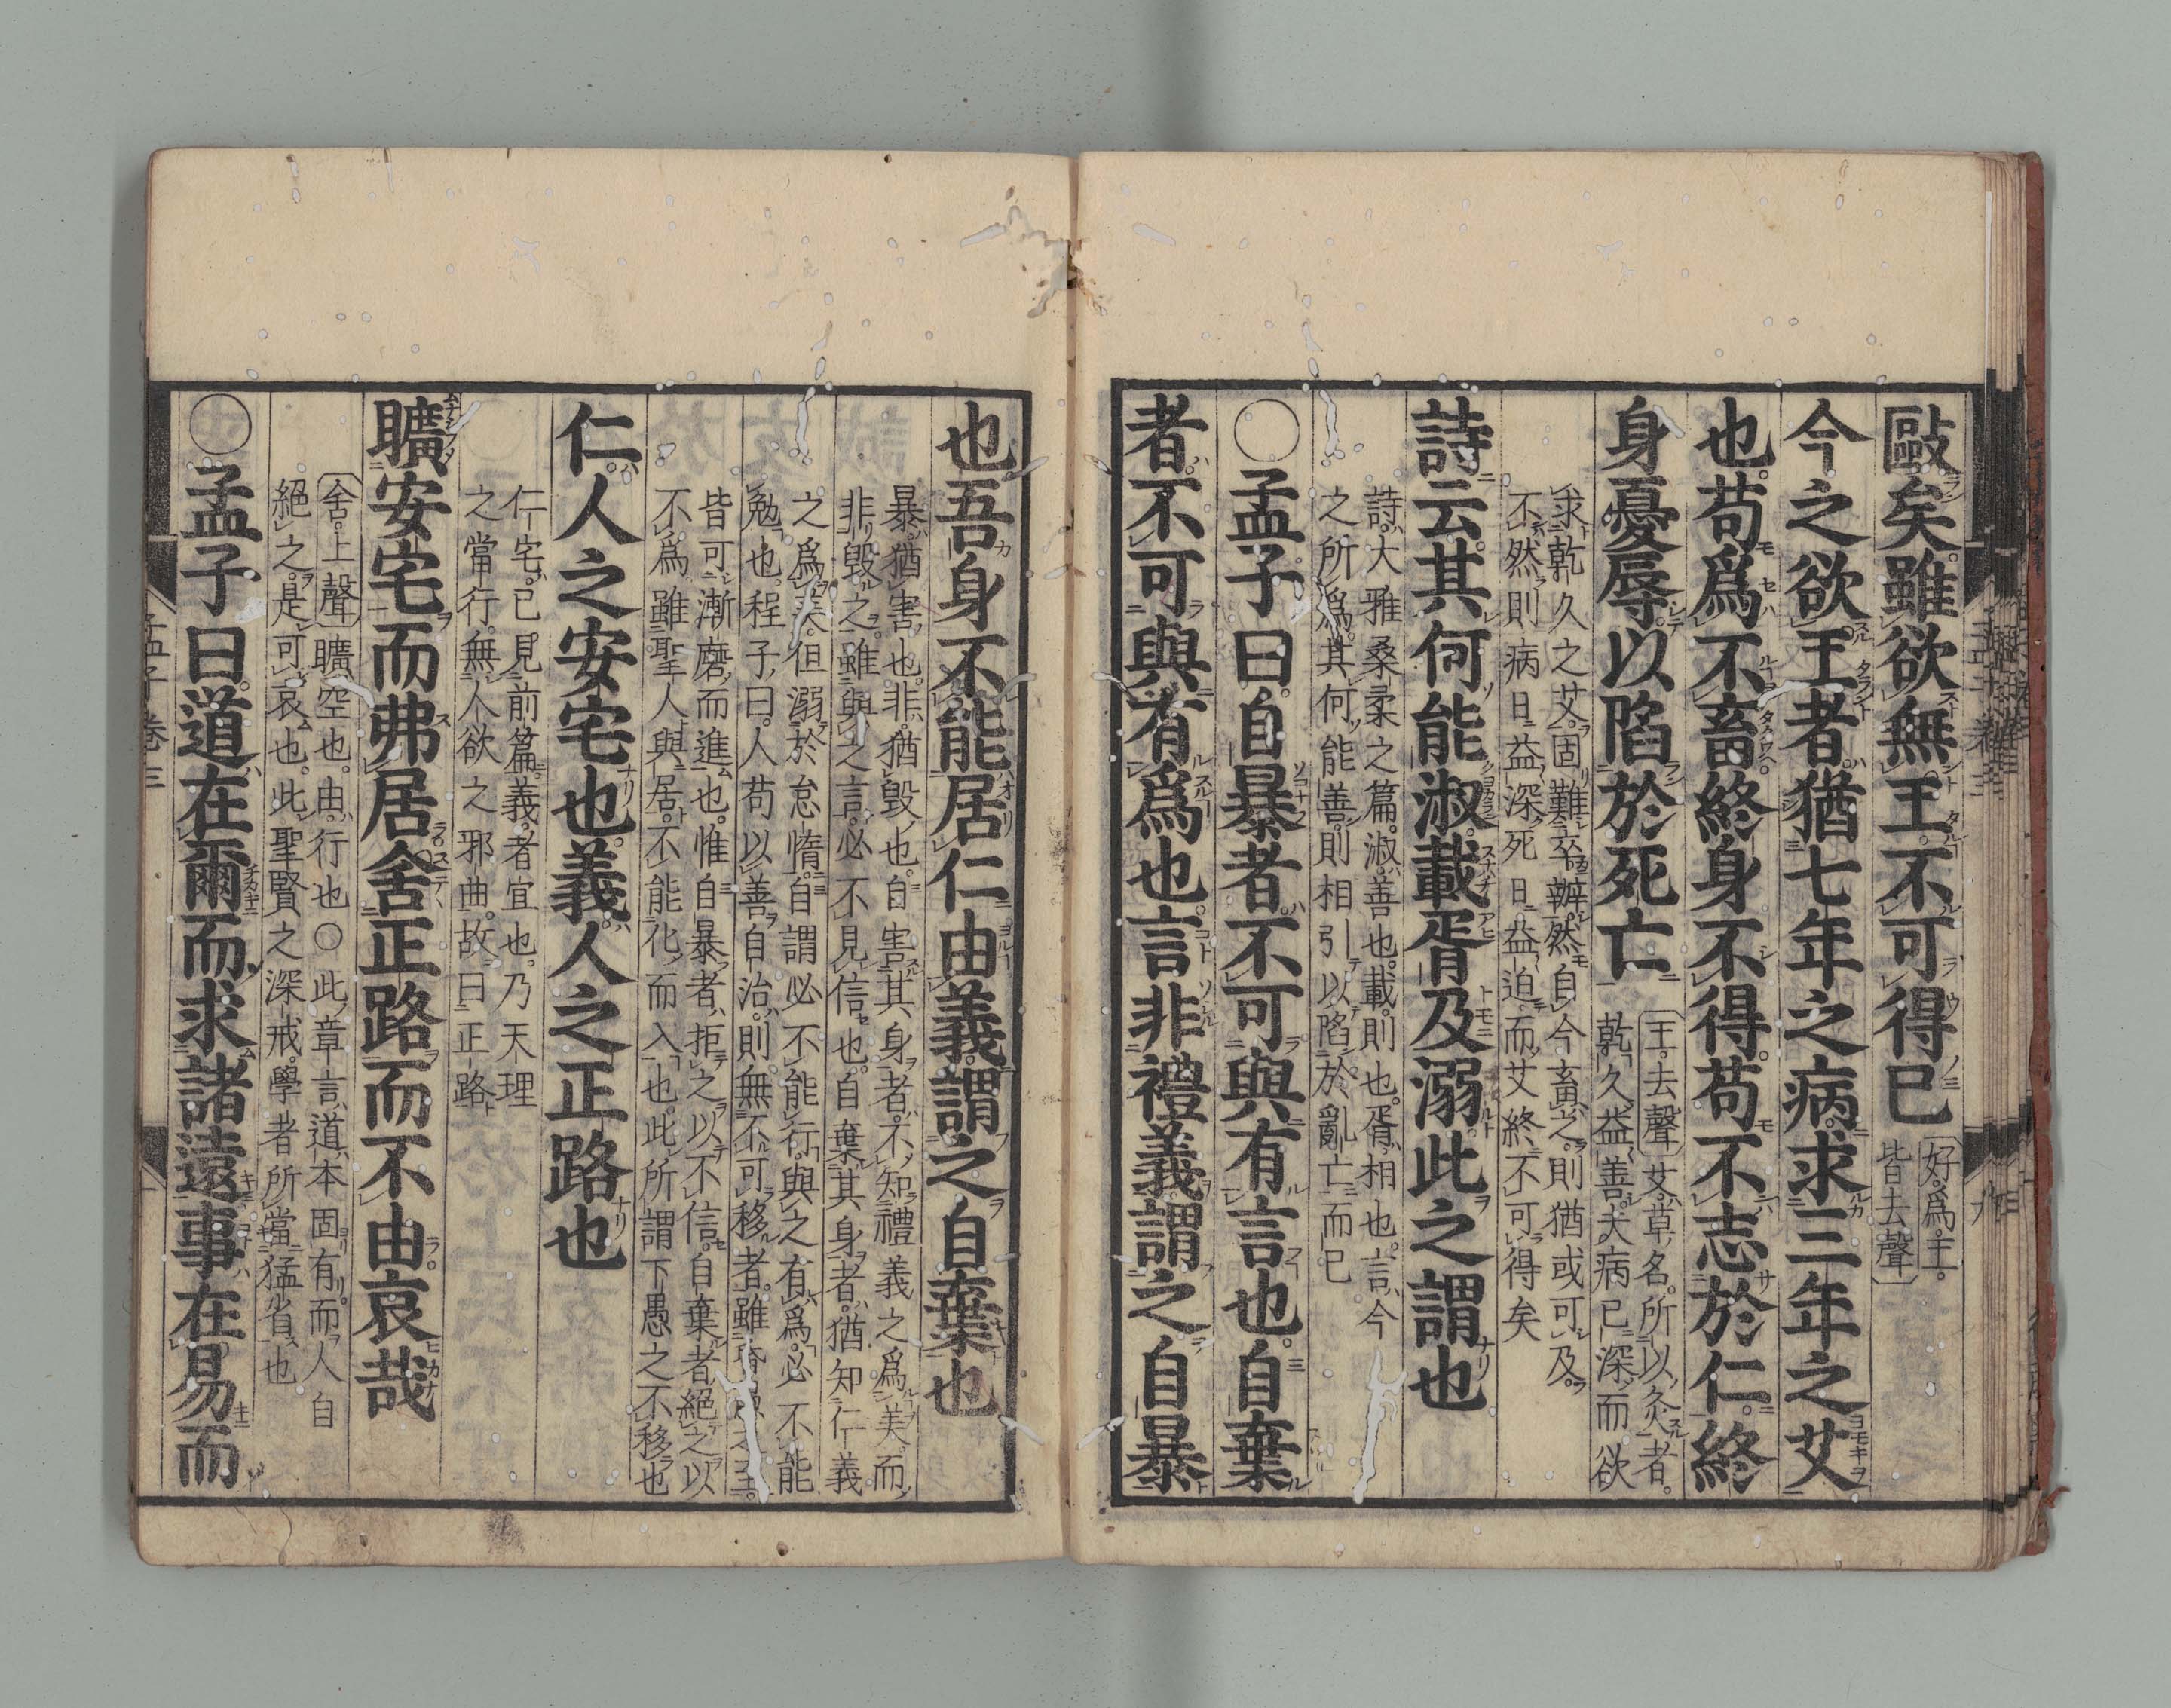 敺矣雖欲無王不可得已
好爲王
皆去聲
今之欲王者猶七年之病求三年之艾
也苟爲不畜終身不得苟不志於仁終
身憂辱以陷於死亡
王去聲艾草名所以灸者
乾久益善夫病已深而欲
求乾久之艾固難卒辦然自今畜之則猶或可及
不然則病日益深死日益迫而艾終不可得矣
詩云其何能淑載胥及溺此之謂也
詩大雅桑柔之篇淑善也載則也胥相也言今
之所爲其何能善則相引以陷於亂亡而已
○孟子曰自暴者不可與有言也自棄
者不可與有爲也言非禮義謂之自暴
也吾身不能居仁由義謂之自棄也
暴猶害也非猶毀也自害其身者不知禮義之爲美而
非毀之雖與之言必不見信也自棄其身者猶知仁義
之爲美但溺於怠惰自謂必不能行與之有爲必不能
勉也程子曰人苟以善自治則無不可移者雖昏愚之至
皆可漸磨而進也惟自暴者拒之以不信自棄者絕之以
不爲雖聖人與居不能化而入也此所謂下愚之不移也
仁人之安宅也義人之正路也
仁宅已見前篇義者宜也乃天理
之當行無人欲之邪曲故曰正路
曠安宅而弗居舍正路而不由哀哉
舍上聲曠空也由行也○此章言道本固有而人自
絕之是可哀也此聖賢之深戒學者所當猛省也
○孟子曰道在爾而求諸遠事在易而
孟子卷三